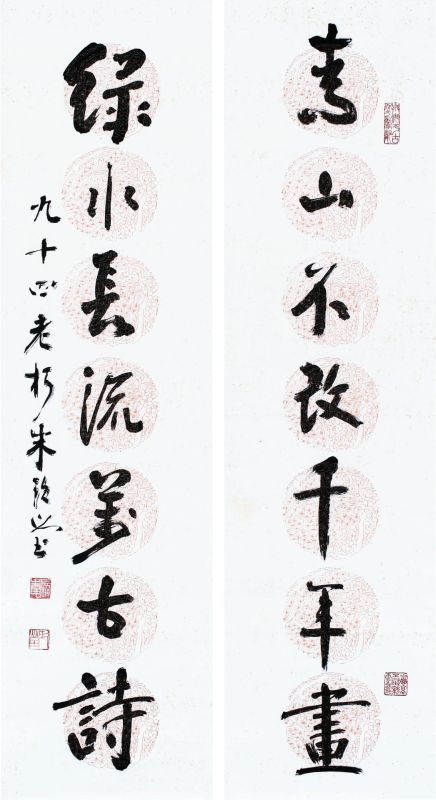 青山不改千年畫
綠水長流萬古詩
九十老朽朱書